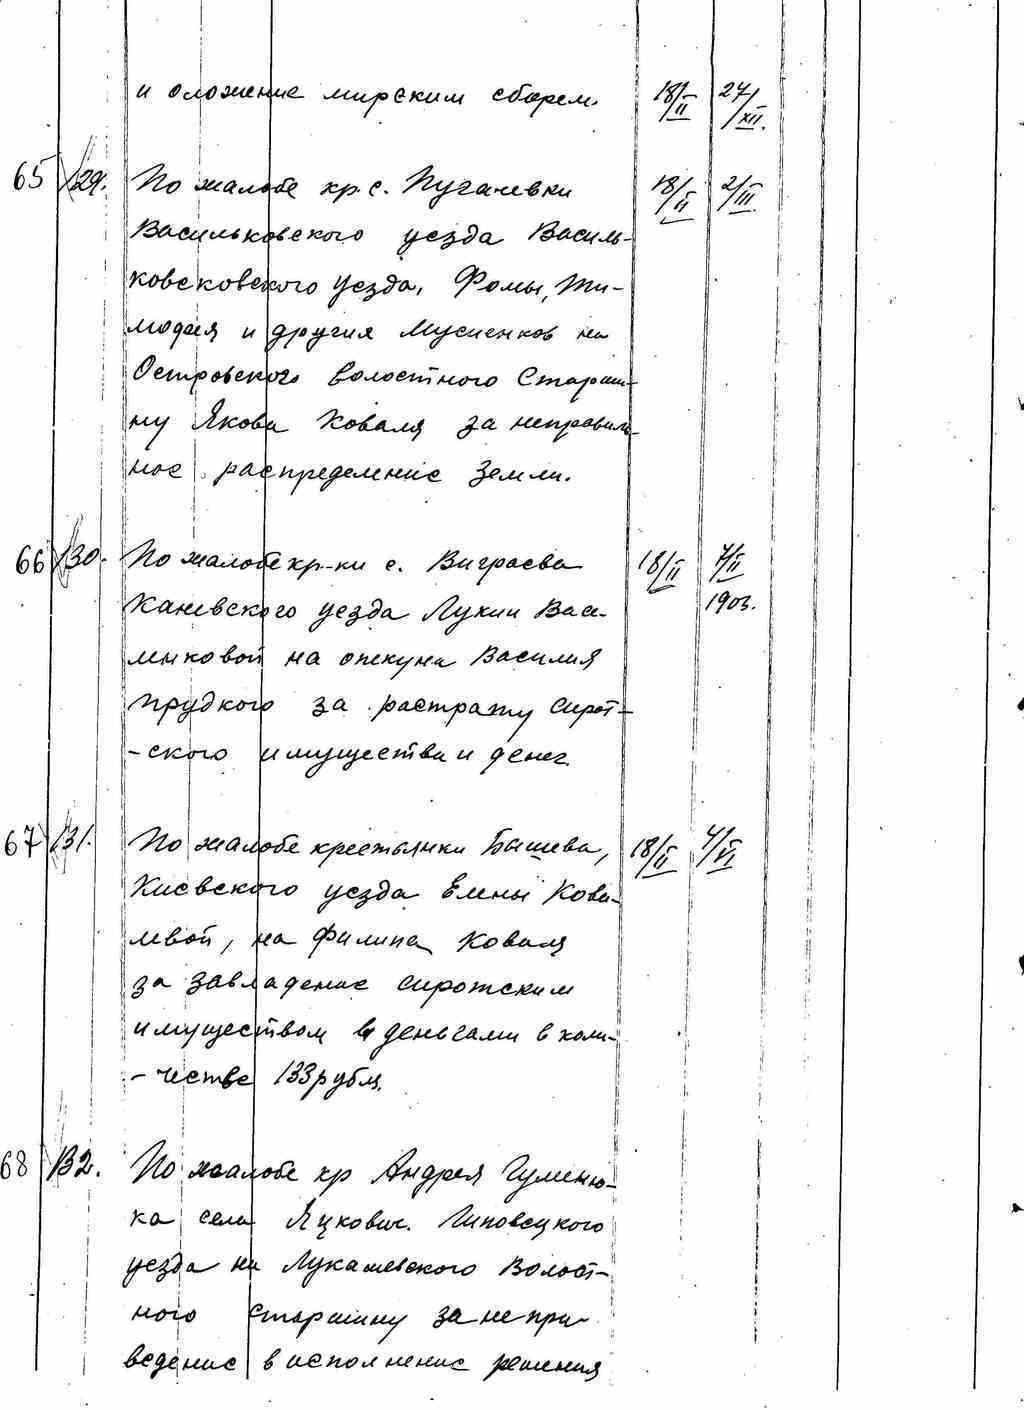 и оложение мирским сбором. 18/II 27/XII.
65 29. По жалобе кр. с. Пугачевки 18/II 2/III
Васильковского уезда Василь-
ковсковского уезда, Фомы, Ти-
мофея и другия Мусиенков на
Островского волостного Старши-
ну Якова Коваля за неправиль-
ное распределение земли.
66 30. По жалобе кр-ки с. Виграева 18/II 7/II
Каневского уезда Лукии Васи- 1903.
льковой на опекуна Василия
Прудкого за растрату сирот-
-ского имущества и денег.
67 31. По жалобе крестьянки Бышева, 18/II 4/VI
Киевского уезда Елены Кова-
левой, на Филипа Коваля
за завладение сиротским
имуществом и деньгами в коли-
-честве 133 рубл.
68 32. По жалобе кр Андрея Гуменю-
ка села Яцкович. Липовецкого
уезда на Лукашевского Волост-
ного Старшину за не при-
ведение в исполнение решения